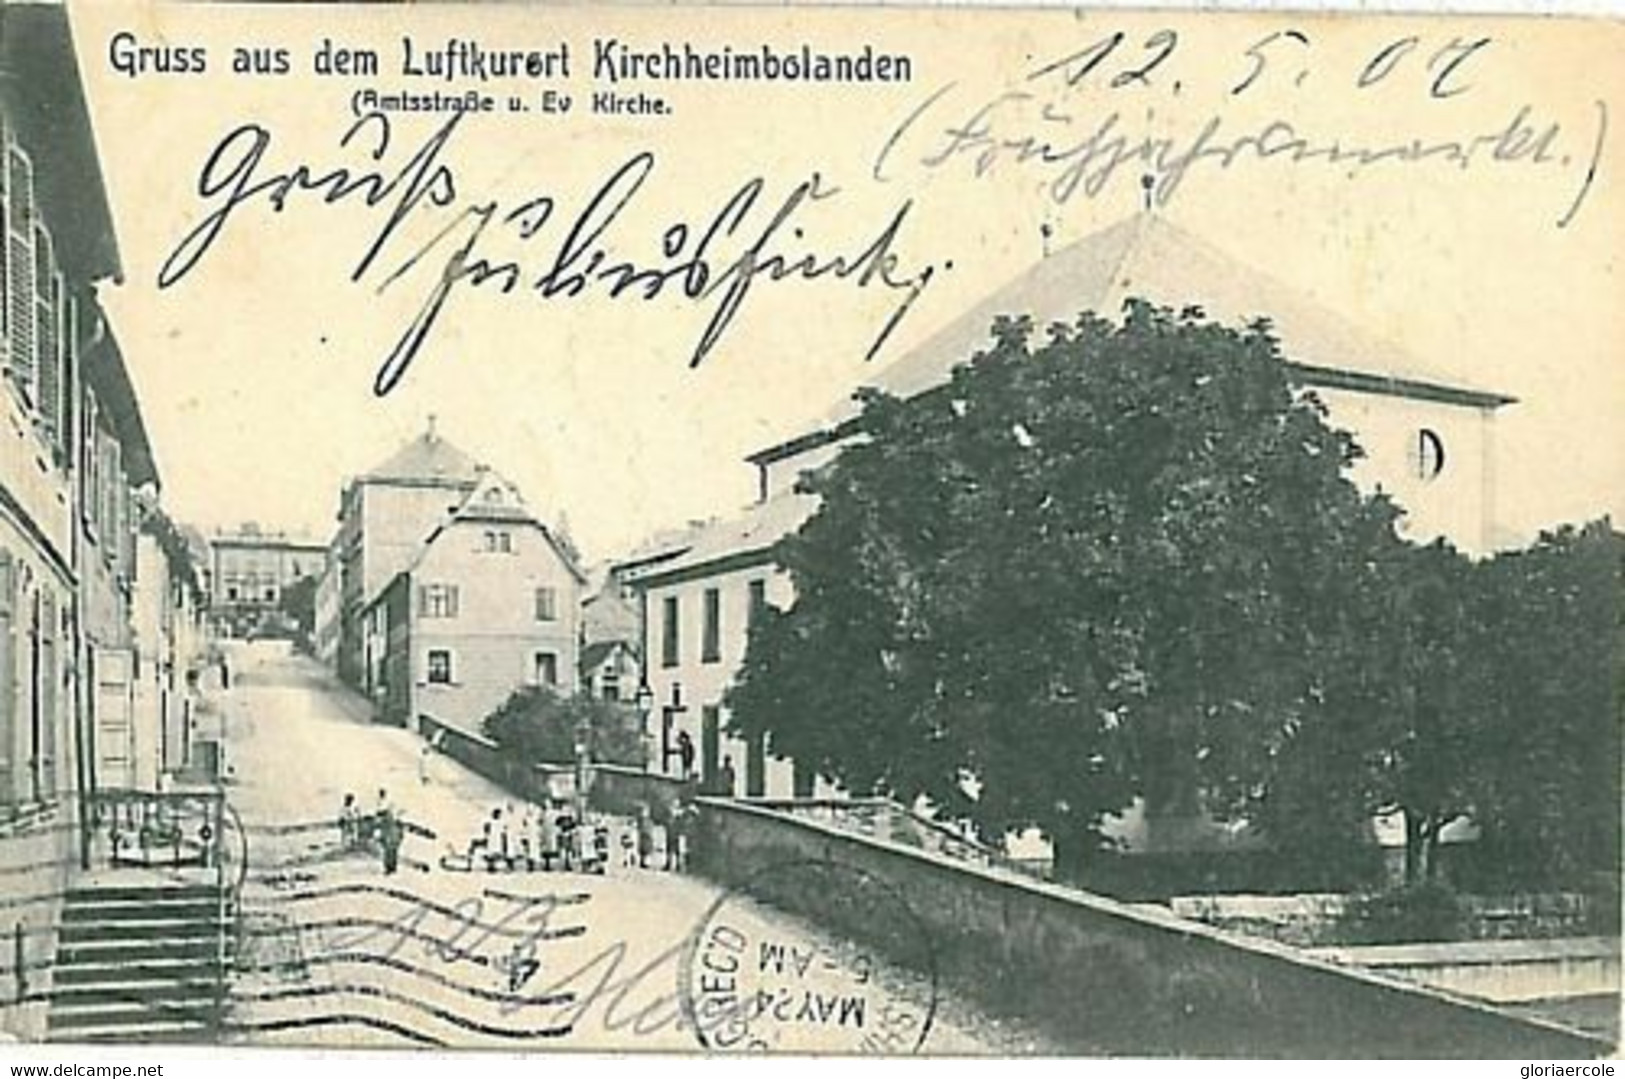 Gruss aus dem Luftkurort Kirchheimbolanden
(Amtsstraße u. Ev Kirche.
12. 5. 07
(Frühjahrsmarkt.)
Gruß
Julius Fink.
REC'D
5-AM
MAY 24
delcampe.net
gloriaercole